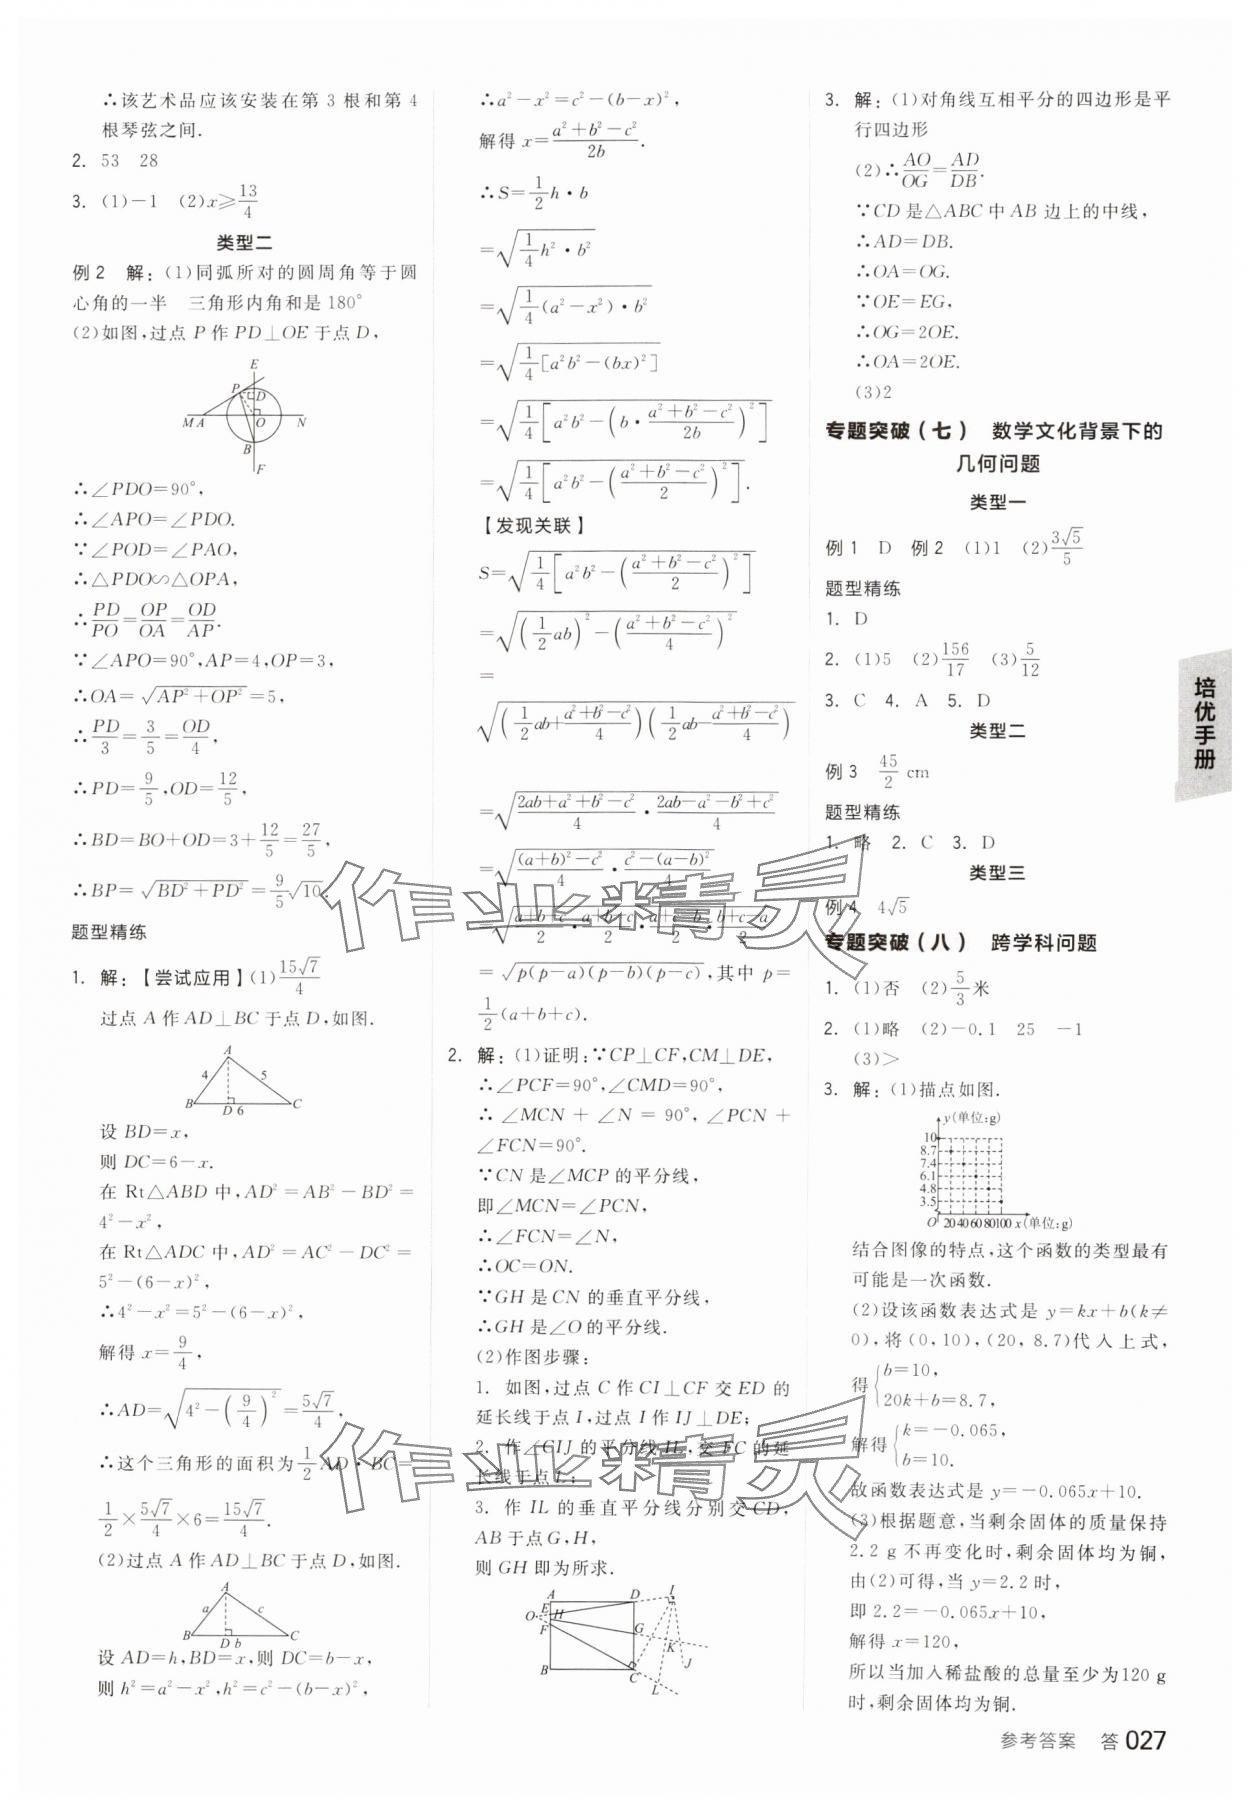 ∴该艺术品应该安装在第 3 根和第 4
根琴弦之间.
2. 53 28
3. (1)-1 (2)x≥13/4
类型二
例 2 解：(1)同弧所对的圆周角等于圆
心角的一半 三角形内角和是 180°
(2)如图,过点 P 作 PD⊥OE 于点 D,
E
P D
M A O N
B
F
∴∠PDO=90°,
∴∠APO=∠PDO.
∵∠POD=∠PAO,
∴△PDO∽△OPA,
∴PD/PO=OP/OA=OD/AP.
∵∠APO=90°,AP=4,OP=3,
∴OA=√(AP²+OP²)=5,
∴PD/3=3/5=OD/4,
∴PD=9/5,OD=12/5,
∴BD=BO+OD=3+12/5=27/5,
∴BP=√(BD²+PD²)=9/5√10.
题型精练
1. 解:【尝试应用】(1)15√7/4
过点 A 作 AD⊥BC 于点 D,如图.
A
4 5
B D 6 C
设 BD=x,
则 DC=6-x.
在 Rt△ABD 中,AD²=AB²-BD²=
4²-x²,
在 Rt△ADC 中,AD²=AC²-DC²=
5²-(6-x)²,
∴4²-x²=5²-(6-x)²,
解得 x=9/4,
∴AD=√(4²-(9/4)²)=5√7/4,
∴这个三角形的面积为1/2 AD·BC=
1/2×5√7/4×6=15√7/4.
(2)过点 A 作 AD⊥BC 于点 D,如图.
A
a c
B D b C
设 AD=h,BD=x,则 DC=b-x,
则 h²=a²-x²,h²=c²-(b-x)²,
∴a²-x²=c²-(b-x)²,
解得 x=(a²+b²-c²)/2b.
∴S=1/2h·b
=√(1/4h²·b²)
=√(1/4(a²-x²)·b²)
=√(1/4[a²b²-(bx)²])
=√(1/4[a²b²-(b·(a²+b²-c²)/2b)²])
=√(1/4[a²b²-((a²+b²-c²)/2)²]).
【发现关联】
S=√(1/4[a²b²-((a²+b²-c²)/2)²])
=√((1/2ab)²-((a²+b²-c²)/4)²)
=
√((1/2ab+(a²+b²-c²)/4)(1/2ab-(a²+b²-c²)/4))
=√((2ab+a²+b²-c²)/4·(2ab-a²-b²+c²)/4)
=√(((a+b)²-c²)/4·(c²-(a-b)²)/4)
=√((a+b-c)/2·(a+b+c)/2·(a+c-b)/2·(b+c-a)/2)
=√(p(p-a)(p-b)(p-c)),其中 p=
1/2(a+b+c).
2. 解：(1)证明:∵CP⊥CF,CM⊥DE,
∴∠PCF=90°,∠CMD=90°,
∴∠MCN+∠N=90°,∠PCN+
∠FCN=90°.
∵CN 是∠MCP 的平分线,
即∠MCN=∠PCN,
∴∠FCN=∠N,
∴OC=ON.
∵GH 是 CN 的垂直平分线,
∴GH 是∠O 的平分线.
(2)作图步骤:
1. 如图,过点 C 作 CI⊥CF 交 ED 的
延长线于点 I,过点 I 作 IJ⊥DE;
2. 作∠CIJ 的平分线 IL,交 FC 的延
长线于点 L;
3. 作 IL 的垂直平分线分别交 CD,
AB 于点 G,H,
则 GH 即为所求.
A D I
E
O H
F G
K
J
B C L
3. 解：(1)对角线互相平分的四边形是平
行四边形
(2)∴AO/OG=AD/DB.
∵CD 是△ABC 中 AB 边上的中线,
∴AD=DB.
∴OA=OG.
∵OE=EG,
∴OG=2OE.
∴OA=2OE.
(3)2
专题突破（七） 数学文化背景下的
几何问题
类型一
例 1 D 例 2 (1)1 (2)3√5/5
题型精练
1. D
2. (1)5 (2)156/17 (3)5/12
3. C 4. A 5. D
类型二
例 3 45/2 cm
题型精练
1. 略 2. C 3. D
类型三
例 4 4√5
专题突破（八） 跨学科问题
1. (1)否 (2)5/3米
2. (1)略 (2)-0.1 25 -1
(3)>
3. 解：(1)描点如图.
y(单位:g)
10
8.7
7.4
6.1
4.8
3.5
O 20 40 60 80 100 x(单位:g)
结合图像的特点,这个函数的类型最有
可能是一次函数.
(2)设该函数表达式是 y=kx+b(k≠
0),将(0,10),(20,8.7)代入上式,
得{b=10,
20k+b=8.7,
解得{k=-0.065,
b=10.
故函数表达式是 y=-0.065x+10.
(3)根据题意,当剩余固体的质量保持
2.2 g 不再变化时,剩余固体均为铜,
由(2)可得,当 y=2.2 时,
即 2.2=-0.065x+10,
解得 x=120,
所以当加入稀盐酸的总量至少为120 g
时,剩余固体均为铜.
培优手册
作业精灵
作业精灵
参考答案 答 027